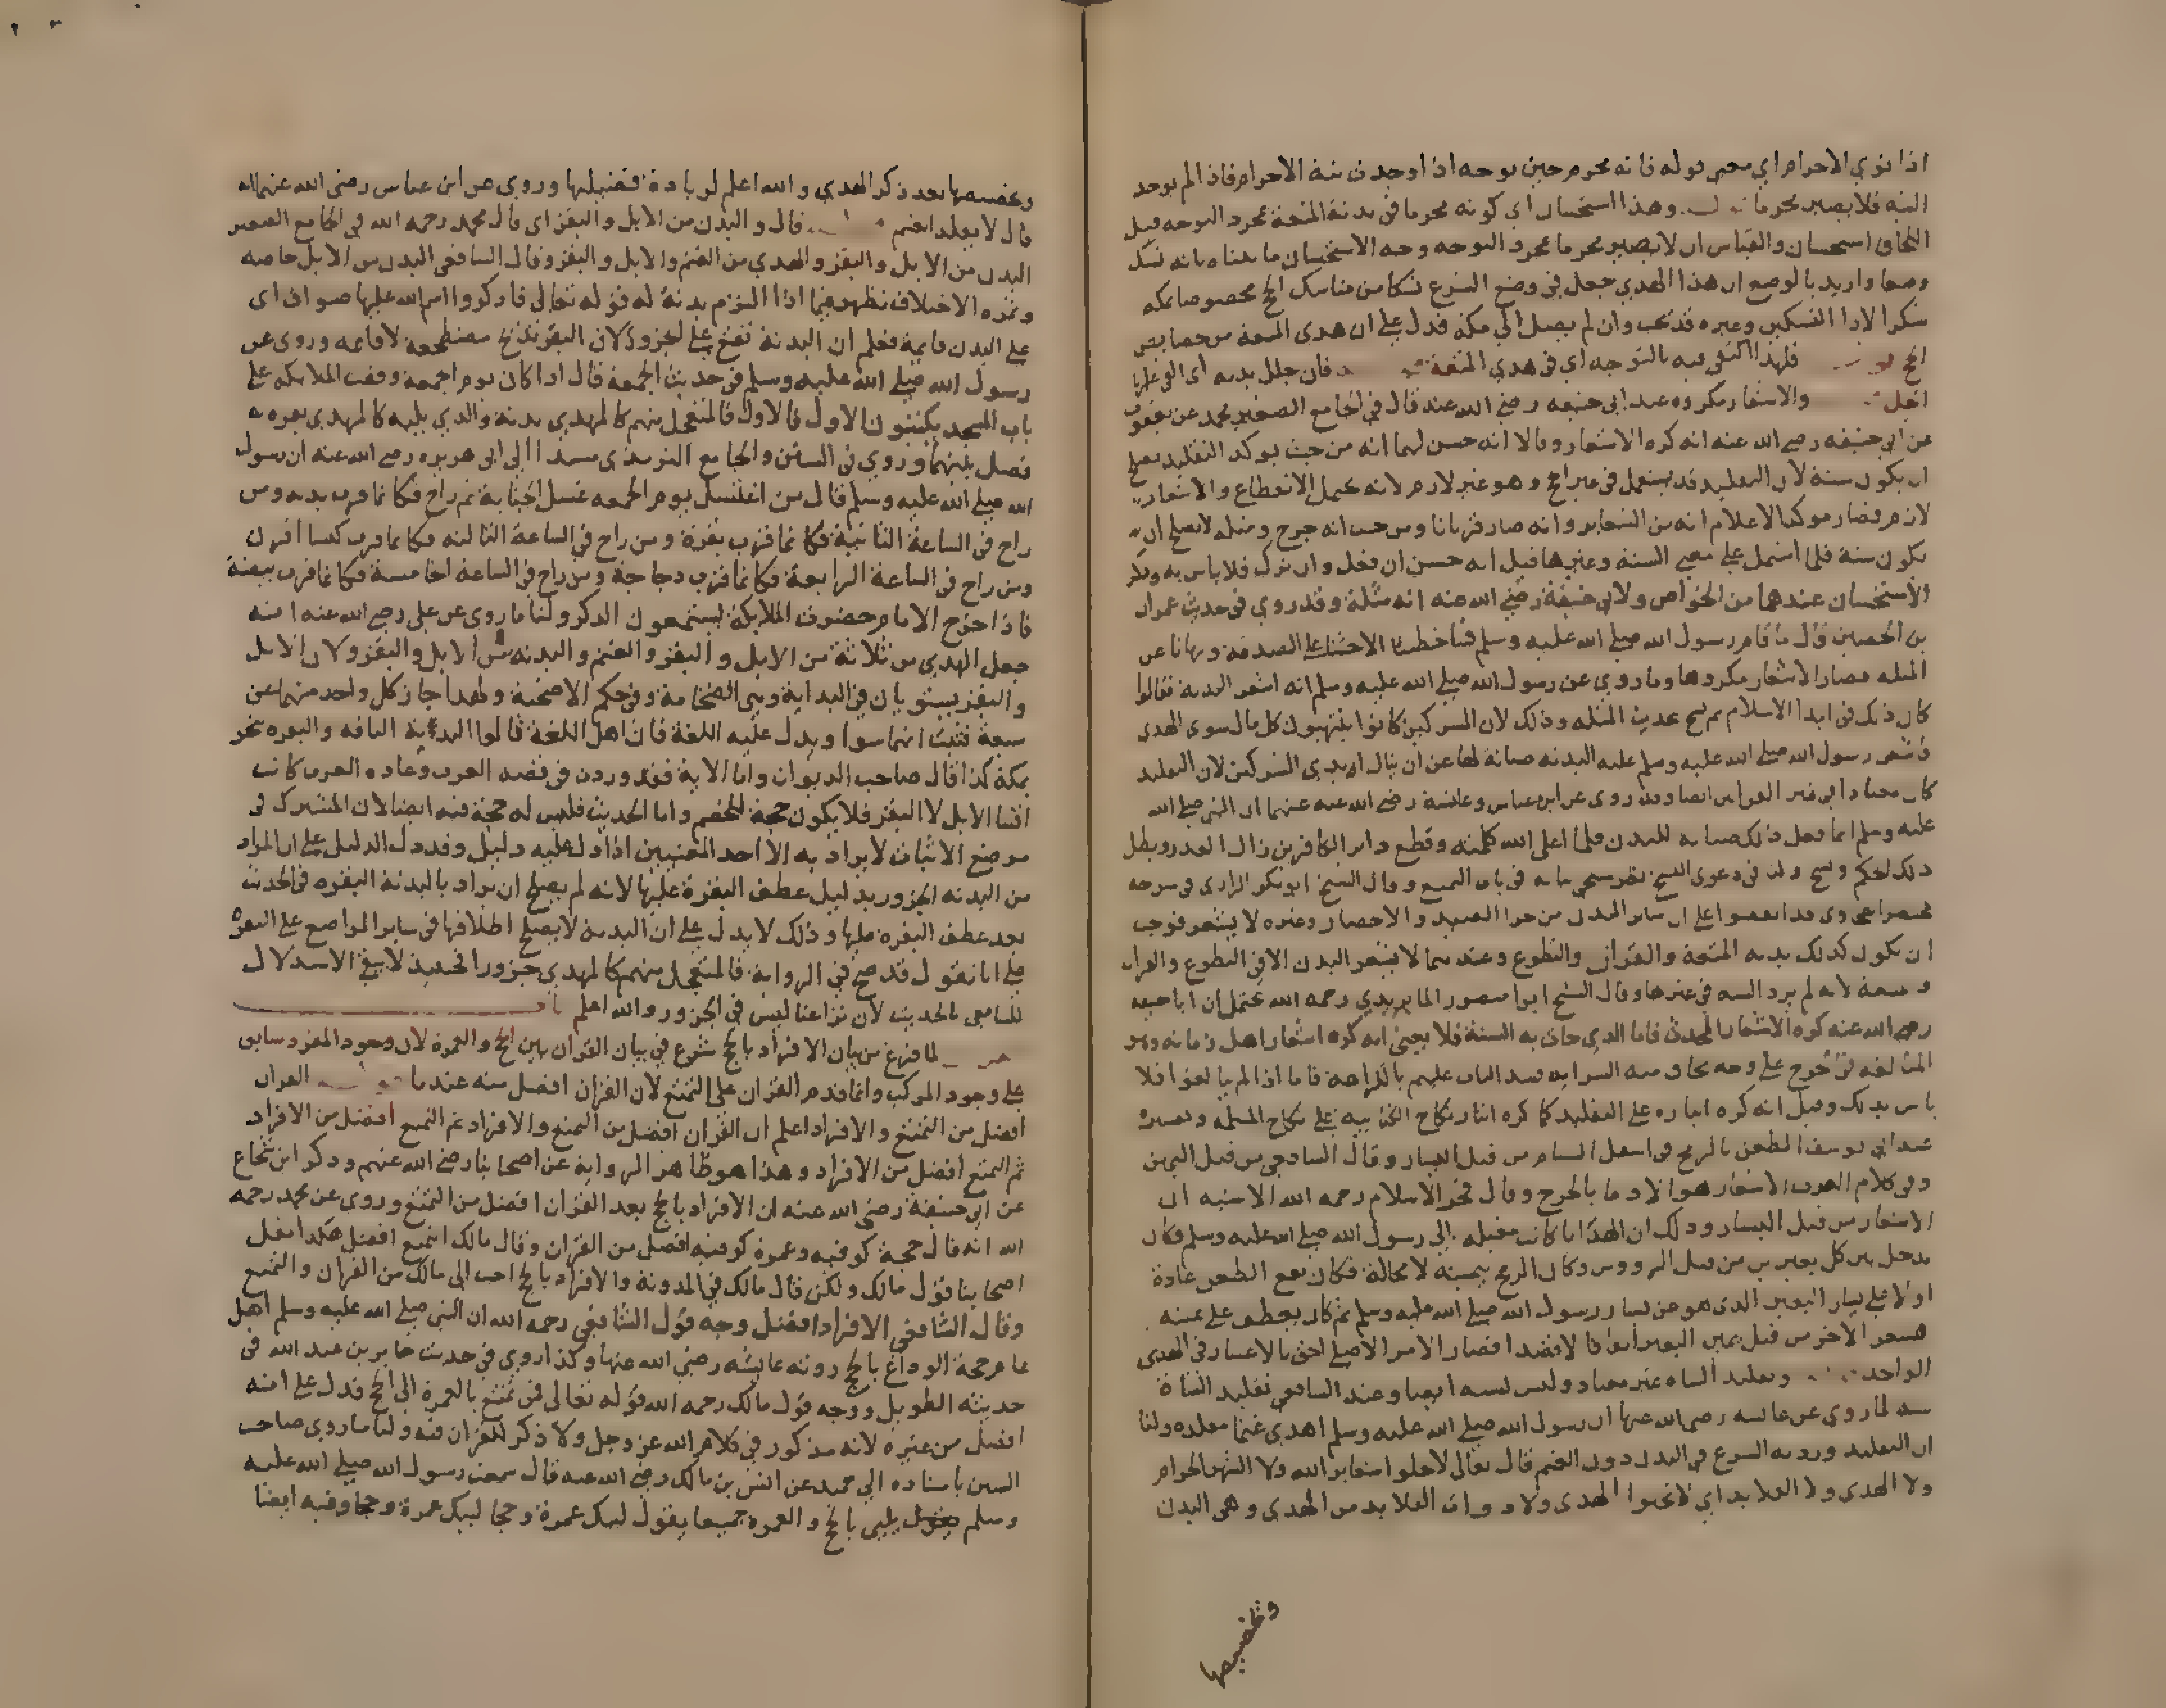 اذا نوي الاحرام اي معنى قوله فانه محرم حين توجه اذا وجدت نية الاحرام فاذا لم توجد
النية فلا يصير محرما وهذا استحسان اي كونه محرما في بدنة المتعة بمجرد التوجه قبل
اللحاق استحسان والقياس ان لا يصير محرما بمجرد التوجه وجه الاستحسان ما بيناه بانه نسك
وضعا واريد بالوضع ان هذا الهدي جعل في وضع الشرع نسكا من مناسك الحج مختصا بمكة
شكرا لاداء النسكين وغيره قد تجب وان لم يصل الى مكة فدل على ان هدى المتعة من خصايص
الحج فلهذا اكتفى فيه بالتوجه اي في هدي المتعة فان جلل بدنه اى القى عليها
الجل والاشعار مكروه عند ابي حنيفه رضي الله عنه قال في الجامع الصغير محمد عن يعقوب
عن ابي حنيفه رضى الله عنه انه كره الاشعار وقالا انه حسن لهما انه من حيث يوكد التقليد يصلح
ان يكون سنة لان التقليد قد يستعمل في غير الحج وهو غير لازم لانه يحتمل الانقطاع والاشعار
لازم فصار موكدا لاعلام انه من الشعاير وانه صار قربانا ومن حيث انه جرح ومثله لا يصلح ان
يكون سنة فلما اشتمل على معنى السنة وغيرها قيل انه حسن ان فعل وان ترك فلا باس به
الاستحسان عندهما من الخواص ولابي حنيفة رضي الله عنه انه مثلة وقد روي في حديث عمران
بن الحصين قال ما قام رسول الله صلى الله عليه وسلم فينا خطيبا الا حثنا على الصدقة ونهانا عن
المثله فصار الاشعار مكروها وما روي عن رسول الله صلى الله عليه وسلم انه اشعر البدنة فقالوا
كان ذلك في ابتدا الاسلام ثم نسخ بحديث المثله وذلك لان المشركين كانوا ينتهبون كل مال سوى الهدى
فاشعر رسول الله صلى الله عليه وسلم عليه البدنه صيانة لها عن ان ينال ايدى المشركين لان التقليد
كان معتادا في غير القرابين ايضا وقد روى عن ابن عباس وعائشة رضي الله عنهما ان النبي صلى الله
عليه وسلم انما فعل ذلك صيانة للبدن فلما اعلى الله كلمته وقطع دابر الكافرين زال العذر وبطل
ذلك الحكم ونسخ ولنا في دعوى النسخ نظر سيجي بيانه في باب التمتع وقال الشيخ ابو بكر الرازى في شرحه
لمختصر الطحاوى قد اتفقوا على ان ساير البدن من جزا الصيد والاحصار وغيره لا يشعر فوجب
ان يكون كذلك بدنه المتعة والقران والتطوع وعندهما لا يشعر البدن الا في التطوع والقران
والمتعة لانه لم يرد السنة في غيرها وقال الشيخ ابو منصور الماتريدي رحمه الله يحتمل ان ابا حنيفه
رضى الله عنه كره الاشعار المحدث فاما الذي جات به السنة فلا يجيئ انه كره اشعار اهل زمانه وهو
المبالغه في الجرح على وجه يخاف منه السرايه فسد الباب عليهم بالكراهة فاما اذا لم يبالغوا فلا
باس بذلك وقيل انه كره ايثاره على التقليد كما كره ايثار نكاح الكتابيه على نكاح المسلمه وتفسيره
عند ابي يوسف الطعن بالرمح في اسفل السنام من قبل اليسار وقال الشافعي من قبل اليمين
وفي كلام العرب الاشعار هو الادما بالجرح وقال فخر الاسلام رحمه الله الاشبه ان
الاشعار من قبل اليسار وذلك ان الهدايا كانت مقبله الى رسول الله صلى الله عليه وسلم فكان
يدخل بين كل بعيرين من قبل الرووس وكان الرمح بيمينه لا محالة فكان يقع الطعن عادة
اولا على يسار البعير الذى هو عن يسار رسول الله صلى الله عليه وسلم ثم كان يعطف على يمينه
فيشعر الاخر من قبل يمين البعير اتفاقا لا قصدا فصار الامر الاصلي احق بالاعتبار في الهدى
الواحد وتقليد الشاه غير معتاد وليس بسنه ايضا وعند الشافعي تقليد الشاة
سنه لما روي عن عائشه رضى الله عنها ان رسول الله صلى الله عليه وسلم اهدى غنما مقلده ولنا
ان التقليد ورد به الشرع في البدن دون الغنم قال تعالى لا تحلوا شعاير الله ولا الشهر الحرام
ولا الهدى ولا القلايد اي لا تحلوا الهدى ولا ذوات القلايد من الهدى وهى البدن
وتخصيصها
وتخصيصها بعد ذكر الهدي والله اعلم لزيادة فضيلتها وروي عن ابن عباس رضي الله عنهما انه
قال لا يقلد الغنم قال والبدن من الابل والبقر اى قال محمد رحمه الله في الجامع الصغير
البدن من الابل والبقر والهدي من الغنم والابل والبقر وقال الشافعى البدن من الابل خاصه
وثمرة الاختلاف تظهر فيما اذا التزم بدنة له قوله تعالى فاذكروا اسم الله عليها صواف اى
على البدن قايمة فعلم ان البدنة تقع على الجزور لان البقر تذبح مضطجعة لا قايمه وروى عن
رسول الله صلى الله عليه وسلم في حديث الجمعة قال اذا كان يوم الجمعة وقفت الملايكه على
باب المسجد يكتبون الاول فالاول فالمتعجل منهم كالمهدي بدنه والذي يليه كالمهدي بقره
فصل بينهما وروي في السنن والجامع الترمذى مسندا الى ابي هريره رضي الله عنه ان رسول
الله صلى الله عليه وسلم قال من اغتسل يوم الجمعه غسل الجنابة ثم راح فكانما قرب بدنه ومن
راح في الساعة الثانية فكانما قرب بقرة ومن راح في الساعة الثالثه فكانما قرب كبشا اقرن
ومن راح في الساعة الرابعة فكانما قرب دجاجة ومن راح في الساعة الخامسة فكانما قرب بيضة
فاذا خرج الامام حضرت الملايكة يستمعون الذكر ولنا ما روى عن على رضي الله عنه انه
جعل الهدي من ثلاثة من الابل والبقر والغنم والبدنه من الابل والبقر ولان الابل
والبقر يستويان في البداية وهي الضخامة وفي حكم الاضحية ولهذا جاز كل واحد منهما عن
سبعة فثبت انهما سوا ويدل عليه اللغة فان اهل اللغة قالوا البدنة الناقه والبقره تنحر
بمكة كذا قال صاحب الديوان واما الاية فقد وردت في قصد العرب وعاده العرب كانت
اقتنا الابل لا البقر فلا يكون حجة للخصم واما الحديث فليس له حجة فيه ايضا لان المشترك فى
موضع الاثبات لا يراد به الا احد المعنيين اذا دل عليه دليل وقد دل الدليل على ان المراد
من البدنه الجزور بدليل عطف البقرة عليها لانه لم يصح ان يراد بالبدنة البقره في الحديث
بعد عطف البقره عليها وذلك لا يدل على ان البدنة لا يصلح اطلاقها في ساير المواضع على البقرة
على انا نقول قد صح في الرواية فالمتعجل منهم كالمهدي جزورا فحينيذ لا يبقى الاستدلال
للشافعي بالحديث لان نزاعنا ليس في الجزور والله اعلم
لما فرغ من بيان الافراد بالحج شرع في بيان القران بين الحج والعمرة لان وجود المفرد سابق
على وجود المركب وانما قدم القران على التمتع لان القران افضل منه عندنا القران
افضل من التمتع والافراد اعلم ان القران افضل من التمتع والافراد ثم التمتع افضل من الافراد
ثم التمتع افضل من الافراد وهذا هو ظاهر الرواية عن اصحابنا رضي الله عنهم وذكر ابن شجاع
عن ابي حنيفة رضي الله عنه ان الافراد بالحج بعد القران افضل من التمتع وروى عن محمد رحمه
الله انه قال حجة كوفيه وعمرة كوفيه افضل من القران وقال مالك التمتع افضل هكذا نقل
اصحابنا قول مالك ولكن قال مالك في المدونة والافراد بالحج احب الى مالك من القران والتمتع
وقال الشافعي الافراد افضل وجه قول الشافعي رحمه الله ان النبي صلى الله عليه وسلم اهل
عام حجة الوداع بالحج روته عايشه رضي الله عنها وكذا روي في حديث جابر بن عبد الله فى
حديثه الطويل ووجه قول مالك رحمه الله قوله تعالى فمن تمتع بالعمرة الى الحج فدل على انه
افضل من غيره لانه مذكور في كلام الله عز وجل ولا ذكر للقران فيه ولنا ما روى صاحب
السنن باسناده الى حميد عن انس بن مالك رضي الله عنه قال سمعت رسول الله صلى الله عليه
وسلم يلبى بالحج والعمره جميعا يقول لبيك عمرة وحجا لبيك عمرة وحجا وفيه ايضا